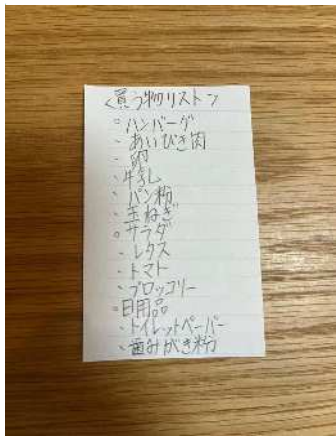 <買う物リスト>
○ハンバーグ
・あいびき肉
・卵
・牛乳
・パン粉
・玉ねぎ
○サラダ
・レタス
・トマト
・ブロッコリー
○日用品
・トイレットペーパー
・歯みがき粉